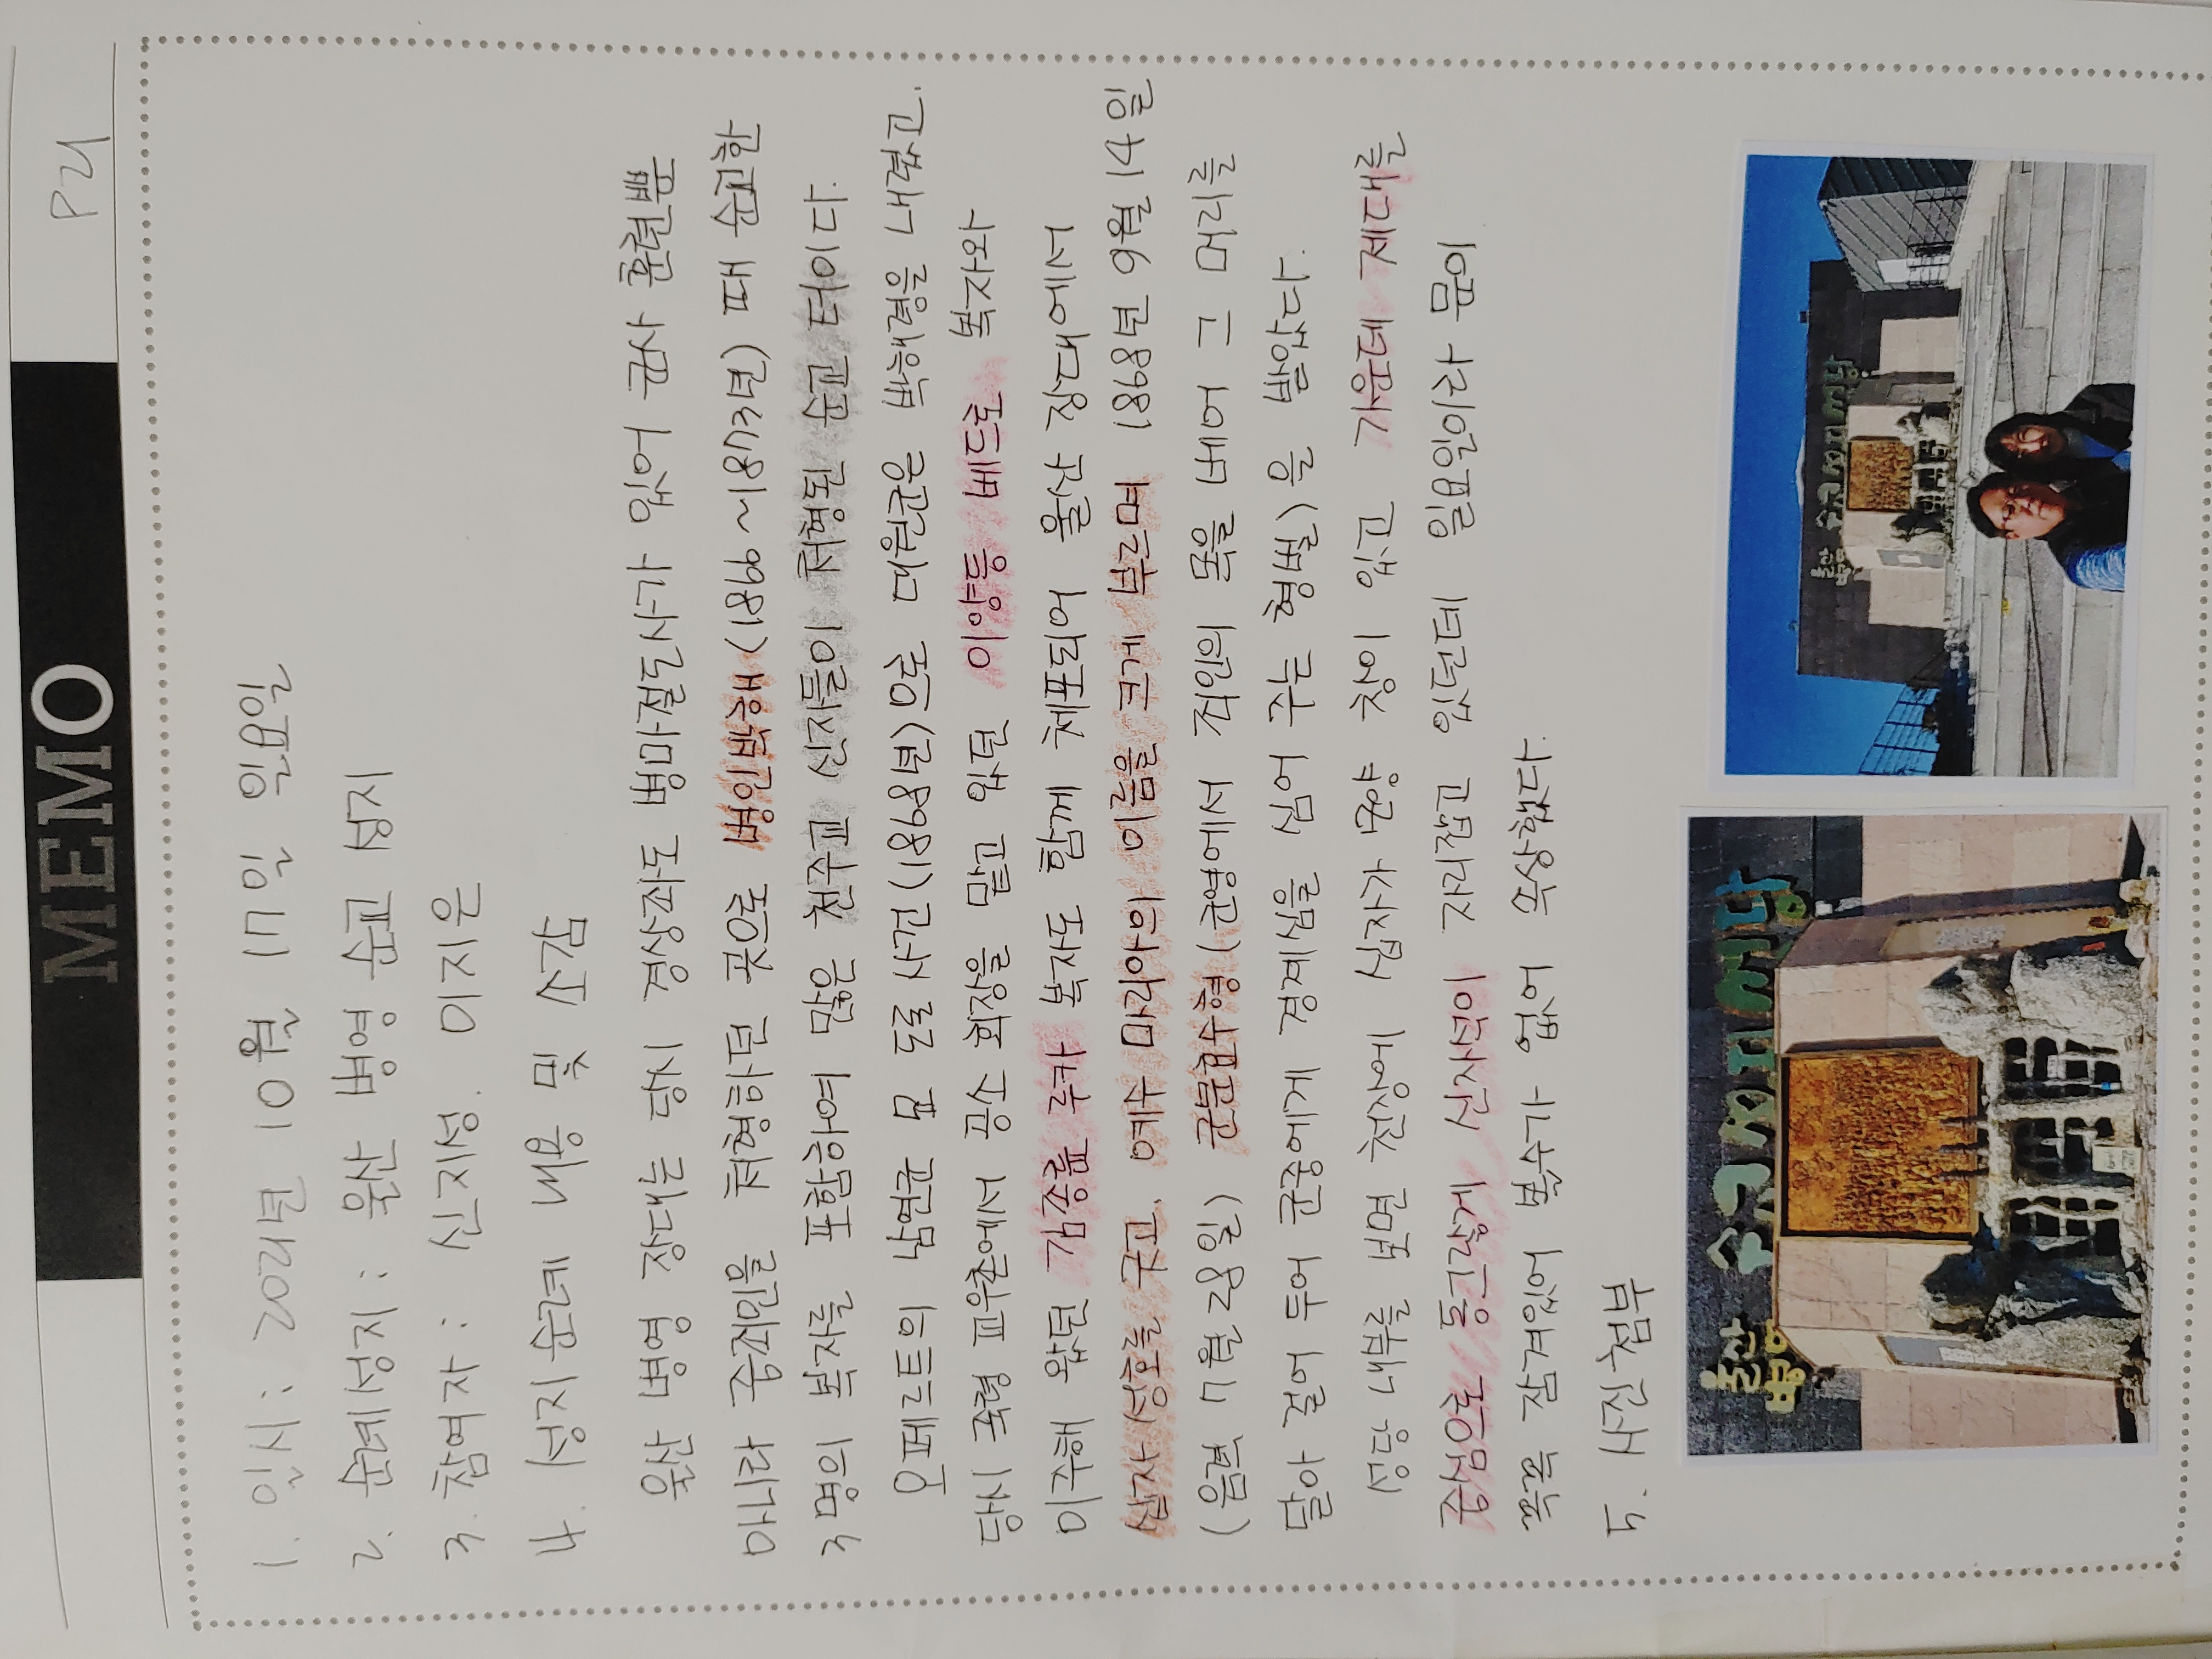 MEMO
P21
1. 일시 : 2021년 10월 17일 일요일
2. 순례성지 : 울산 병영 순교 성지
3. 참여자 : 신지성. 이지은
4. 성지순례 내용 및 소감
울산 병영 장대는 당시 경상좌도 병마절도사가 있어 군사 훈련뿐
아니라 중죄인을 처형하던 곳으로 병인박해(1866~1873년) 때 순교한
3명의 복자를 포함하여 많은 천주교 신자들이 처형된 순교 터이다.
오페르트의 남연군 묘 도굴 사건(1868년)으로 대원군은 박해령을 내렸고.
당시 죽령 교우촌에서 공소 회장을 맡고 있던 이양등 베드로 복자와
이주해 왔던 김종륜 루카 복자도 함께 체포되어 울산 장대에서
십자 성호를 긋고. 예수 마리아의 이름을 크게 부르며 1868년 9월 14일
(음력 7월 28일) 군문효수형(군영에서 죄인의 목을 베어 그 머리를
달아 걸어 두어 군중에게 경계심을 심어 주는 형벌)을 받았다.
성당 내부를 보면 천장에 십자가 모양 창이 있고 가운데 제대를
중심으로 동그랗게 신자석이 자리잡고 있던데 일요일이라 문이
꼭꼭 잠겨있어 볼수가 없어 속상했다.
5. 사진첨부
울산 병영 순교성지성당
울산 병영 순교성지성당